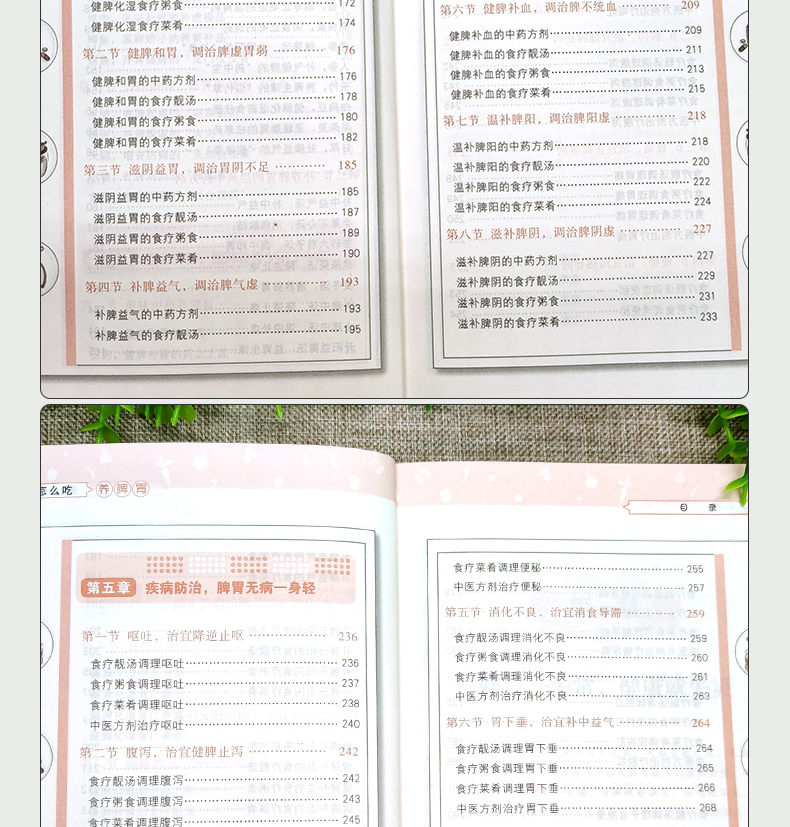 健脾化湿食疗粥食 172
健脾化湿食疗菜肴 174
第二节 健脾和胃，调治脾虚胃弱 176
健脾和胃的中药方剂 176
健脾和胃的食疗靓汤 178
健脾和胃的食疗粥食 180
健脾和胃的食疗菜肴 182
第三节 滋阴益胃，调治胃阴不足 185
滋阴益胃的中药方剂 185
滋阴益胃的食疗靓汤 187
滋阴益胃的食疗粥食 189
滋阴益胃的食疗菜肴 190
第四节 补脾益气，调治脾气虚 193
补脾益气的中药方剂 193
补脾益气的食疗靓汤 195
第六节 健脾补血，调治脾不统血 209
健脾补血的中药方剂 209
健脾补血的食疗靓汤 211
健脾补血的食疗粥食 213
健脾补血的食疗菜肴 215
第七节 温补脾阳，调治脾阳虚 218
温补脾阳的中药方剂 218
温补脾阳的食疗靓汤 220
温补脾阳的食疗粥食 222
温补脾阳的食疗菜肴 224
第八节 滋补脾阴，调治脾阴虚 227
滋补脾阴的中药方剂 227
滋补脾阴的食疗靓汤 229
滋补脾阴的食疗粥食 231
滋补脾阴的食疗菜肴 233
怎么吃 养脾胃
第五章 疾病防治，脾胃无病一身轻
第一节 呕吐，治宜降逆止呕 236
食疗靓汤调理呕吐 236
食疗粥食调理呕吐 237
食疗菜肴调理呕吐 238
中医方剂治疗呕吐 240
第二节 腹泻，治宜健脾止泻 242
食疗靓汤调理腹泻 242
食疗粥食调理腹泻 243
食疗菜肴调理腹泻 245
目 录
食疗菜肴调理便秘 255
中医方剂治疗便秘 257
第五节 消化不良，治宜消食导滞 259
食疗靓汤调理消化不良 259
食疗粥食调理消化不良 260
食疗菜肴调理消化不良 261
中医方剂治疗消化不良 263
第六节 胃下垂，治宜补中益气 264
食疗靓汤调理胃下垂 264
食疗粥食调理胃下垂 265
食疗菜肴调理胃下垂 266
中医方剂治疗胃下垂 268